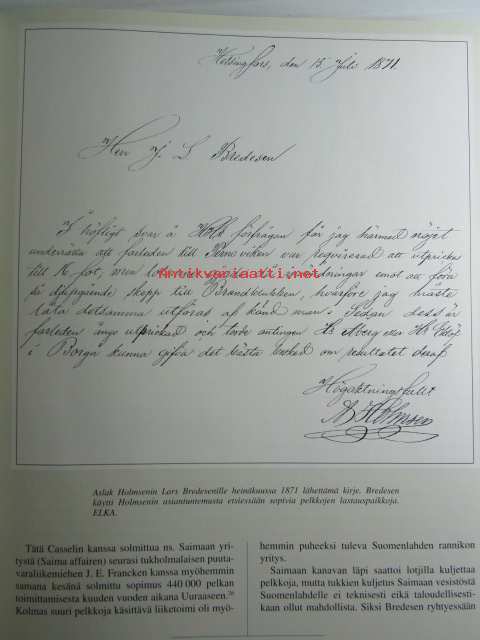 Helsingfors, den 15 Juli 1871
Herr J. L. Bredesen
I höfligt svar å förfrågan får jag härmed nöjet
underrätta att farleden till viken var reqvirerad att utprickas
till 16 fot, men emot att föra
så djupgående skepp till Brandklubben, hvarföre jag måste
låta detsamma utföras af kand man. Sedan dess är
farleden ånyo utprickad och torde antingen Hr Åberg eller Hr
i Borgå kunna gifva det bästa besked om resultatet deraf
Högaktningsfullt
A Holmsen
Antikvariaatti.net
Aslak Holmsenin Lars Bredesenille heinäkuussa 1871 lähettämä kirje. Bredesen
käytti Holmsenin asiantuntemusta etsiessään sopivia pelkkojen lastauspaikkoja.
ELKA.
Tätä Casselin kanssa solmittua ns. Saimaan yri-
tystä (Saima affairen) seurasi tukholmalaisen puuta-
varaliikemiehen J. E. Francken kanssa myöhemmin
samana kesänä solmittu sopimus 440 000 pelkan
toimittamisesta kuuden vuoden aikana Uuraaseen.
Kolmas suuri pelkkoja käsittävä liiketoimi oli myö-
hemmin puheeksi tuleva Suomenlahden rannikon
yritys.
Saimaan kanavan läpi saattoi lotjilla kuljettaa
pelkkoja, mutta tukkien kuljetus Saimaan vesistöstä
Suomenlahdelle ei teknisesti eikä taloudellisesti-
kaan ollut mahdollista. Siksi Bredesen ryhtyessään